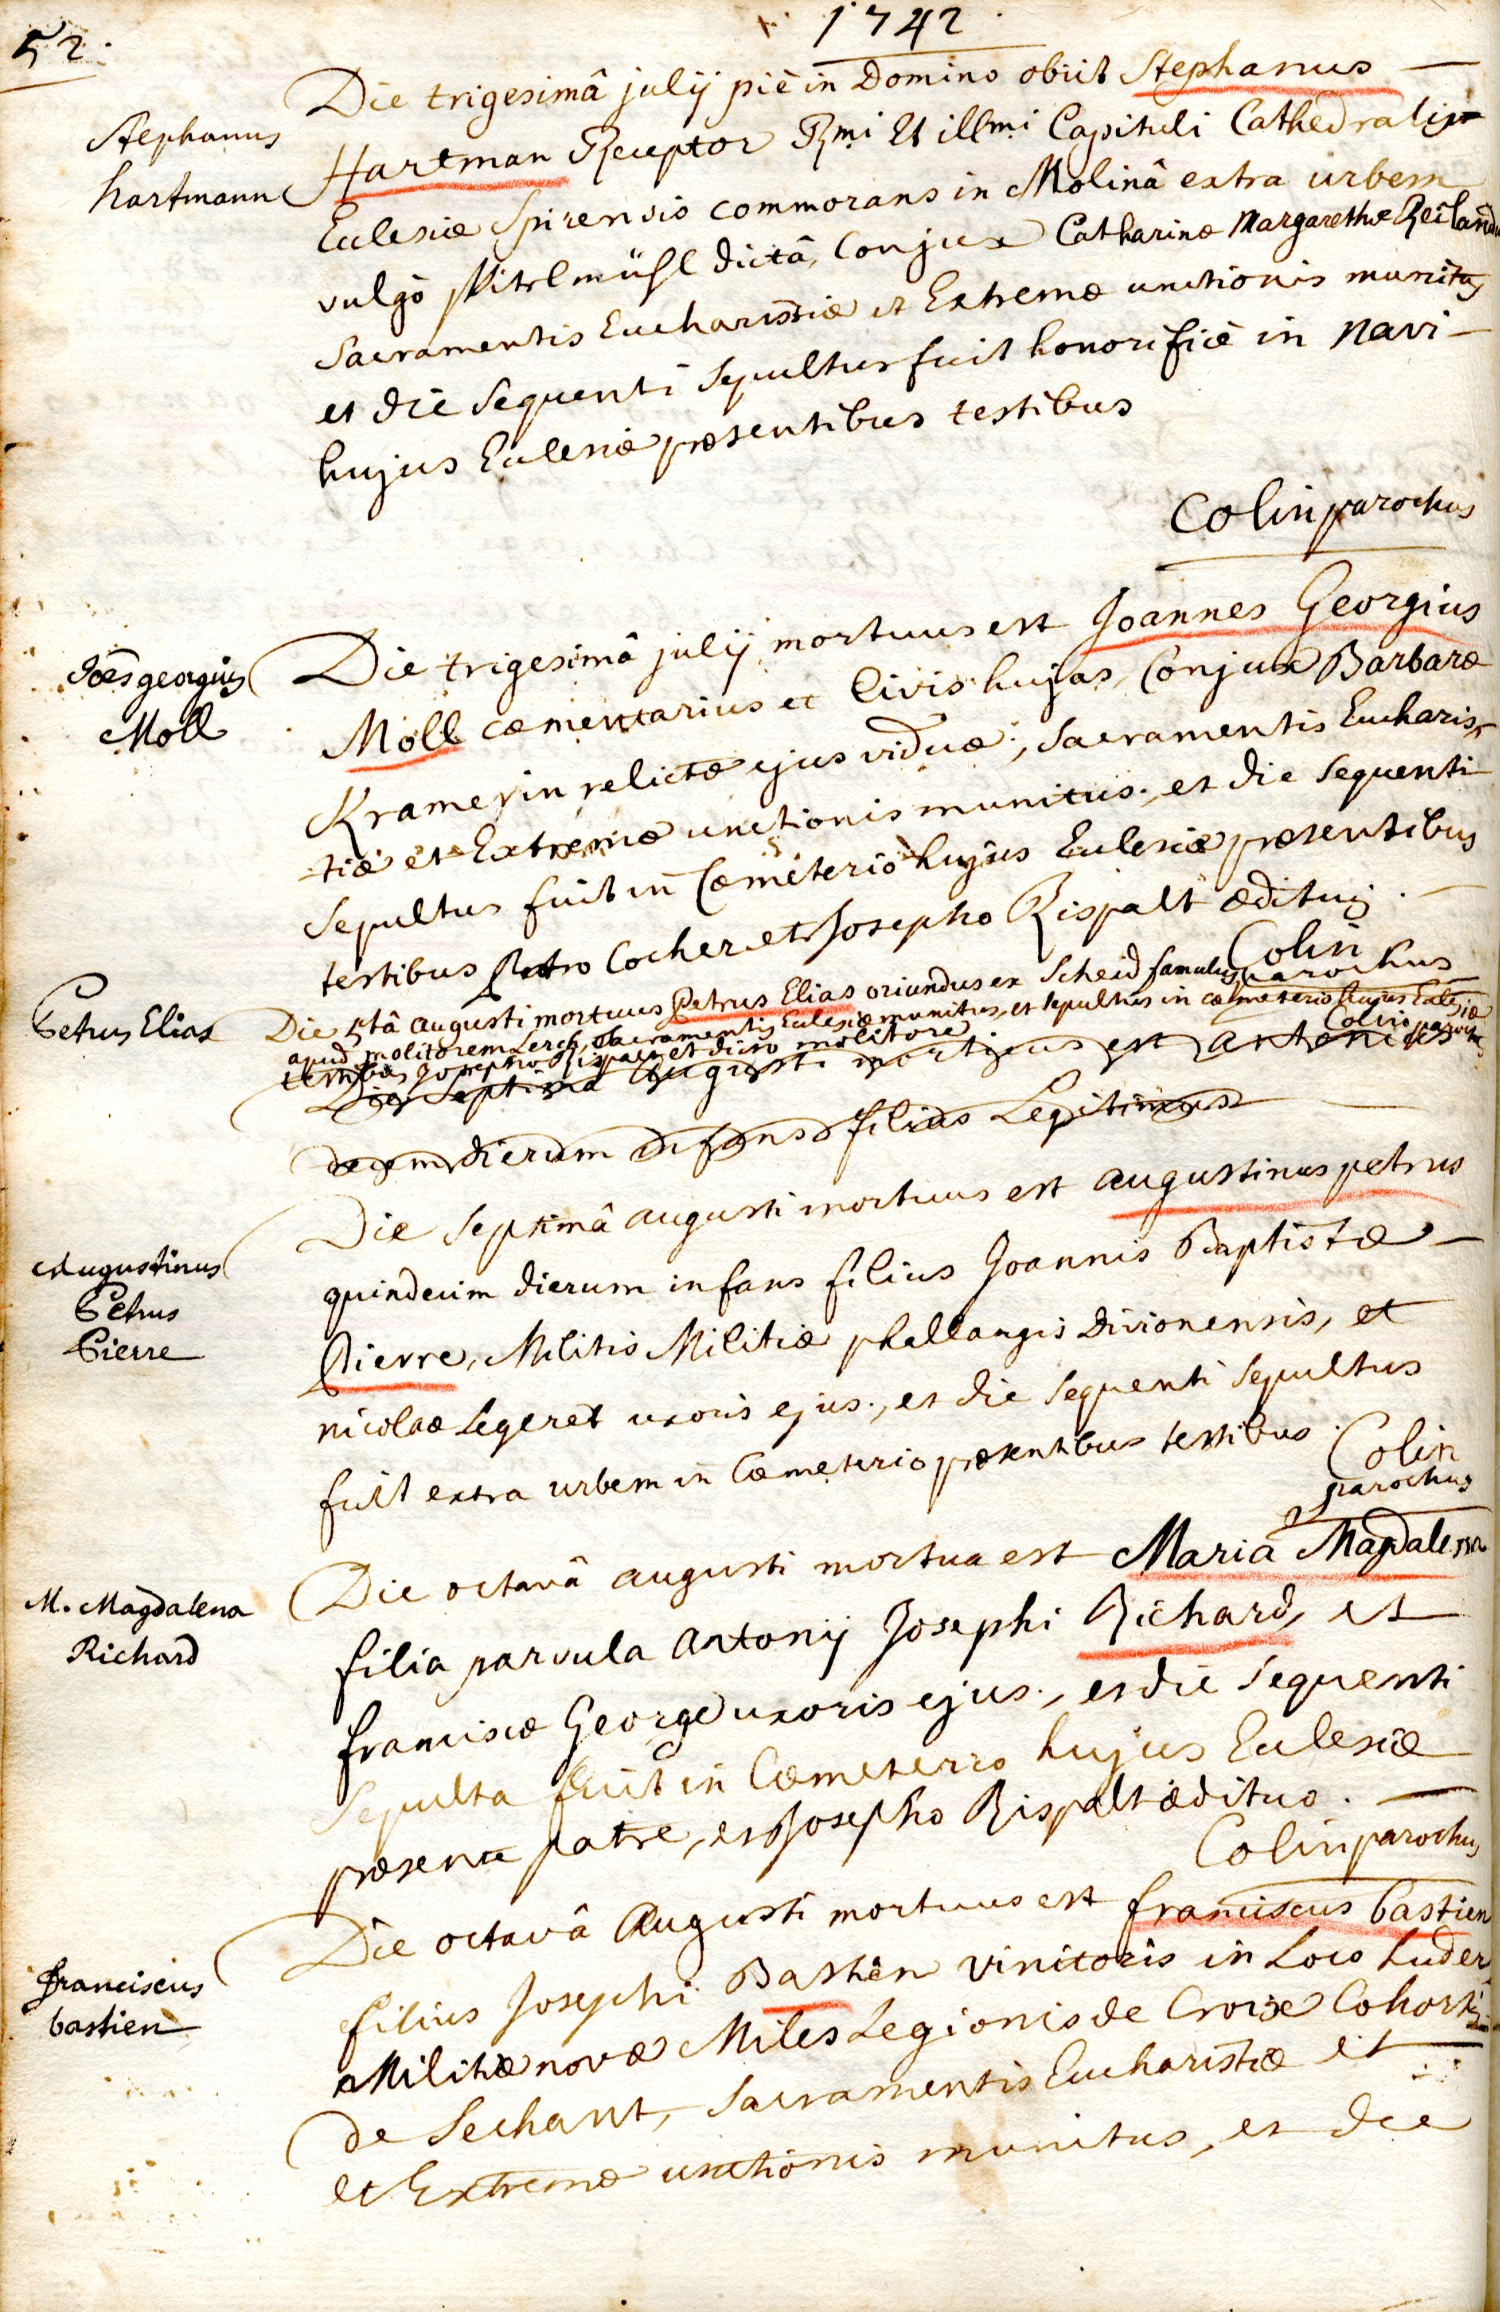 52.
1742.
Stephanus
hartmann
Die trigesimâ julij piè in Domino obiit Stephanus
Hartman Receptor Rmi Et illmi Capituli Cathedralis
Eclesiæ Spirensis commorans in Molinâ extra urbem
vulgò dictâ, Conjux Catharinæ Margarethæ
Sacramentis Eucharistiæ et Extremæ unctionis munitus
et die sequenti sepultus fuit honorificè in navi
hujus Eclesiæ præsentibus testibus
Colin parochus
Joês georgius
Moll
Die trigesimâ julij mortuus est Joannes Georgius
Moll cæmentarius et Civis hujas, Conjux Barbaræ
Kramerin relictæ ejus viduæ, Sacramentis Eucharis-
tiæ et Extremæ unctionis munitus, et die sequenti
sepultus fuit in Cæmeterio hujus Eclesiæ præsentibus
testibus Petro Cocher et Josepho Rispalt ædituij.
Colin
parochus
Petrus Elias
Die 5tâ augusti mortuus Petrus Elias oriundus ex Scheid famulus
apud molitorem Lerch, Sacramentis Eclesiæ munitus, et sepultus in cæmeterio hujus Eclesiæ
testibus Josepho Rispalt et dicto molitore
Colin parochus
Die Septima Augusti mortuus est antonius
decem dierum infans filius Legitimus
Augustinus
Petrus
Pierre
Die Septimâ augusti mortuus est augustinus petrus
quindecim dierum infans filius Joannis Baptistæ
Pierre, Militis Militiæ phallangis Divionensis, et
nicolaæ Legeret uxoris ejus, et die sequenti sepultus
fuit extra urbem in Cæmeterio præsentibus testibus.
Colin
parochus
M. Magdalena
Richard
Die octavâ augusti mortua est Maria Magdalena
filia parvula Antonij Josephi Richard, et
franciscæ George uxoris ejus, et die sequenti
Sepulta fuit in Cæmeterio hujus Eclesiæ
præsente patre, et Josepho Rispalt ædituo.
Colin parochus
franciscus
bastien
Die octavâ Augusti mortuus est franciscus bastien
filius Josephi Bastien vinitoris in Loco Luder
Militiæ novæ Miles Legionis de Croix Cohortis
de Sechant, Sacramentis Eucharistiæ et
et Extremæ unctionis munitus, et die